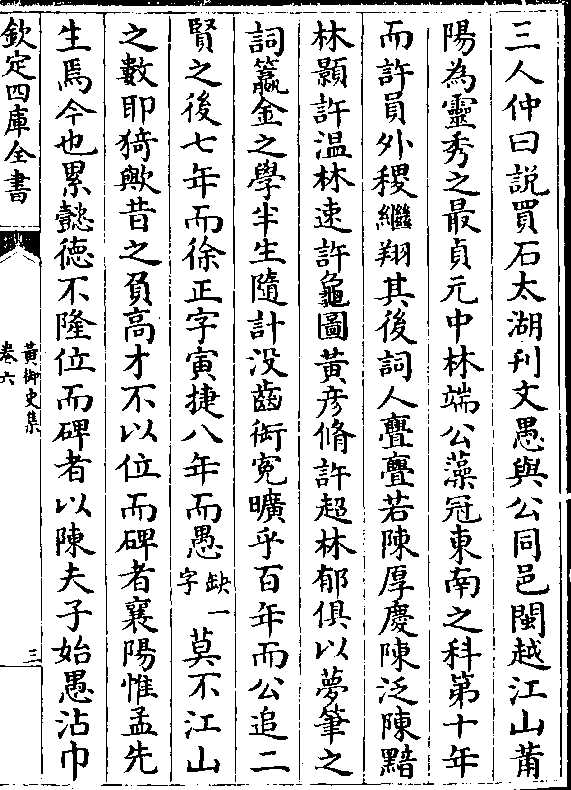 三人仲曰説買石太湖刋文愚與公同邑閩越江山莆
陽為靈秀之最貞元中林端公藻冠東南之科第十年
而許員外稷繼翔其後詞人亹亹若陳厚慶陳泛陳黯
林顥許温林速許龜圖黄彦脩許超林郁俱以夢筆之
詞籯金之學半生隨計没齒銜寃曠乎百年而公追二
賢之後七年而徐正字寅捷八年而愚缺一字莫不江山
之數耶猗歟昔之負高才不以位而碑者襄陽惟孟先
生焉今也累懿德不隆位而碑者以陳夫子始愚沾巾
欽定四庫全書
黄御史集
卷六
三